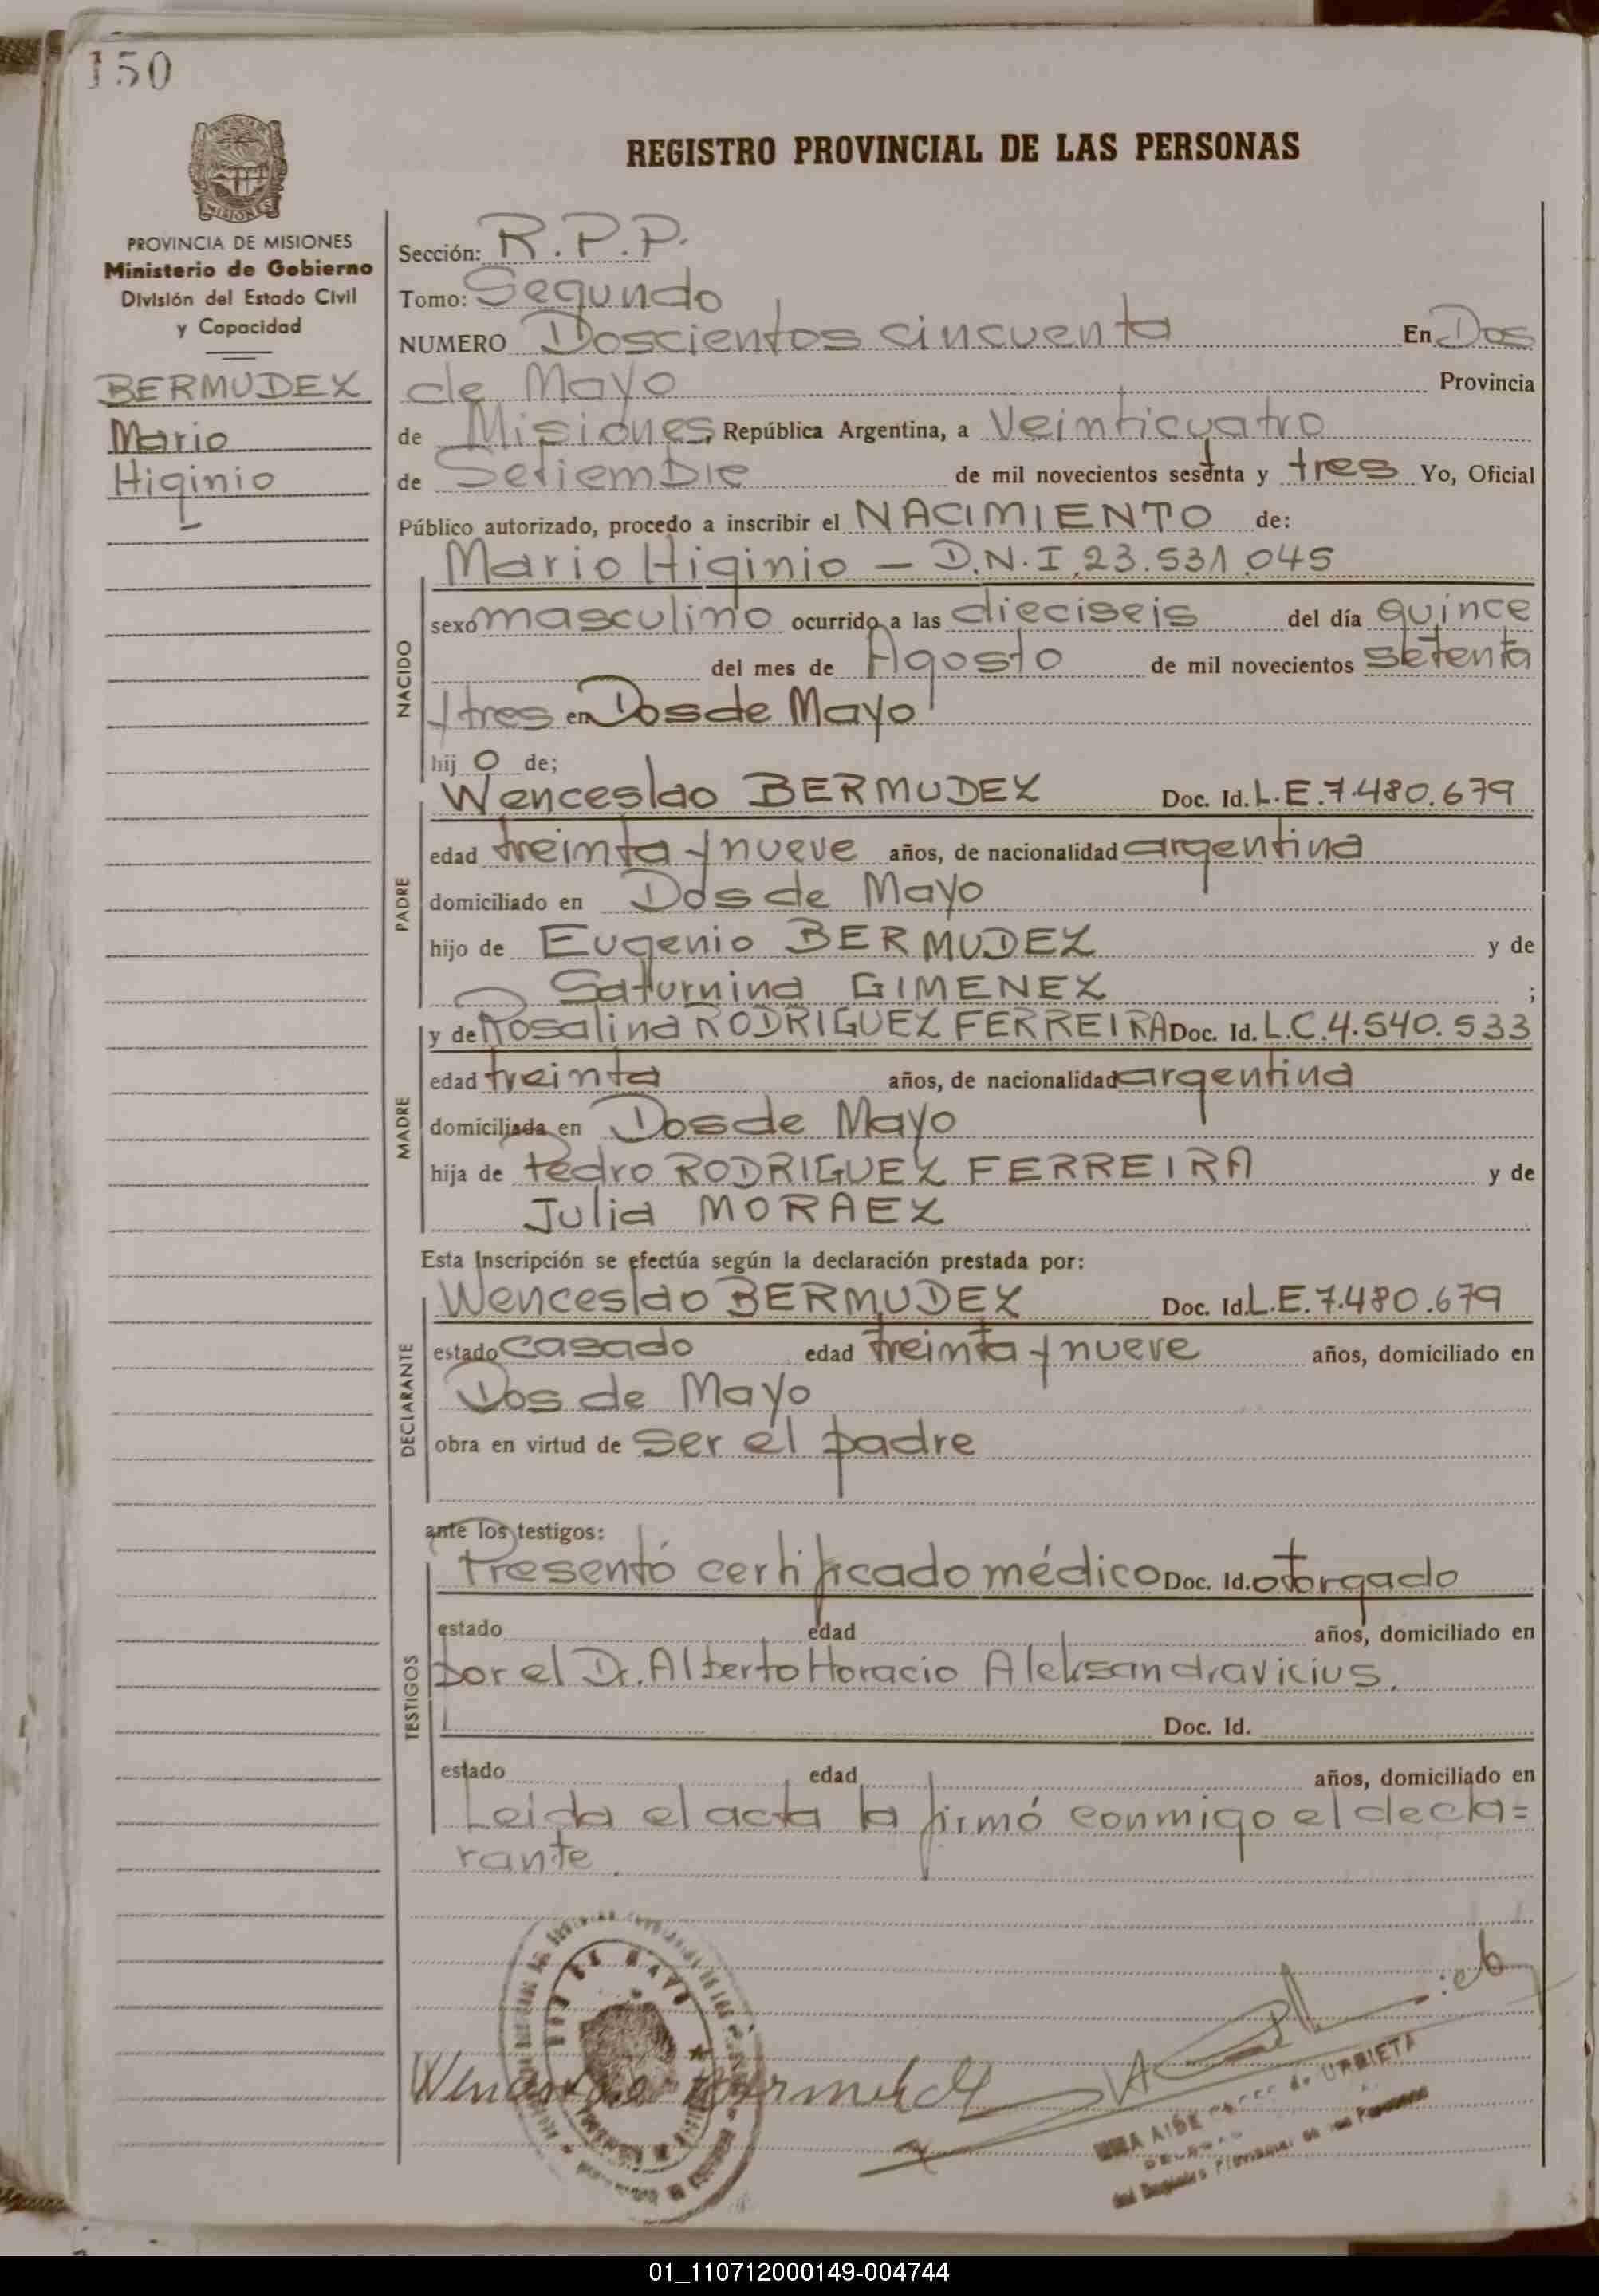 150
REGISTRO PROVINCIAL DE LAS PERSONAS
MISIONES
PROVINCIA DE MISIONES
Ministerio de Gobierno
División del Estado Civil
y Capacidad
BERMUDEZ
Mario
Higinio
Sección: R.P.P.
Tomo: Segundo
NUMERO Doscientos cincuenta En Dos
de Mayo Provincia
de Misiones, República Argentina, a Veinticuatro
de Setiembre de mil novecientos setenta y tres Yo, Oficial
Público autorizado, procedo a inscribir el NACIMIENTO de:
Mario Higinio — D.N.I. 23.531.045
NACIDO
sexo masculino ocurrido a las dieciseis del día quince
del mes de Agosto de mil novecientos setenta
y tres en Dos de Mayo
hij o de;
PADRE
Wenceslao BERMUDEZ Doc. Id. L.E. 7.480.679
edad treinta y nueve años, de nacionalidad argentina
domiciliado en Dos de Mayo
hijo de Eugenio BERMUDEZ y de
Saturnina GIMENEZ ;
MADRE
y de Rosalina RODRIGUEZ FERREIRA Doc. Id. L.C. 4.540.533
edad treinta años, de nacionalidad argentina
domiciliada en Dos de Mayo
hija de Pedro RODRIGUEZ FERREIRA y de
Julia MORAEZ
Esta Inscripción se efectúa según la declaración prestada por:
DECLARANTE
Wenceslao BERMUDEZ Doc. Id. L.E. 7.480.679
estado casado edad treinta y nueve años, domiciliado en
Dos de Mayo
obra en virtud de ser el padre
ante los testigos:
TESTIGOS
Presentó certificado médico Doc. Id. otorgado
estado edad años, domiciliado en
por el Dr. Alberto Horacio Aleksandravicius.
Doc. Id.
estado edad años, domiciliado en
Leida el acta la firmó conmigo el decla=
rante.
DOS DE MAYO
Wenceslao Bermudez
AIDE de URRIETA
del Registro Provincial de las Personas
01_110712000149-004744